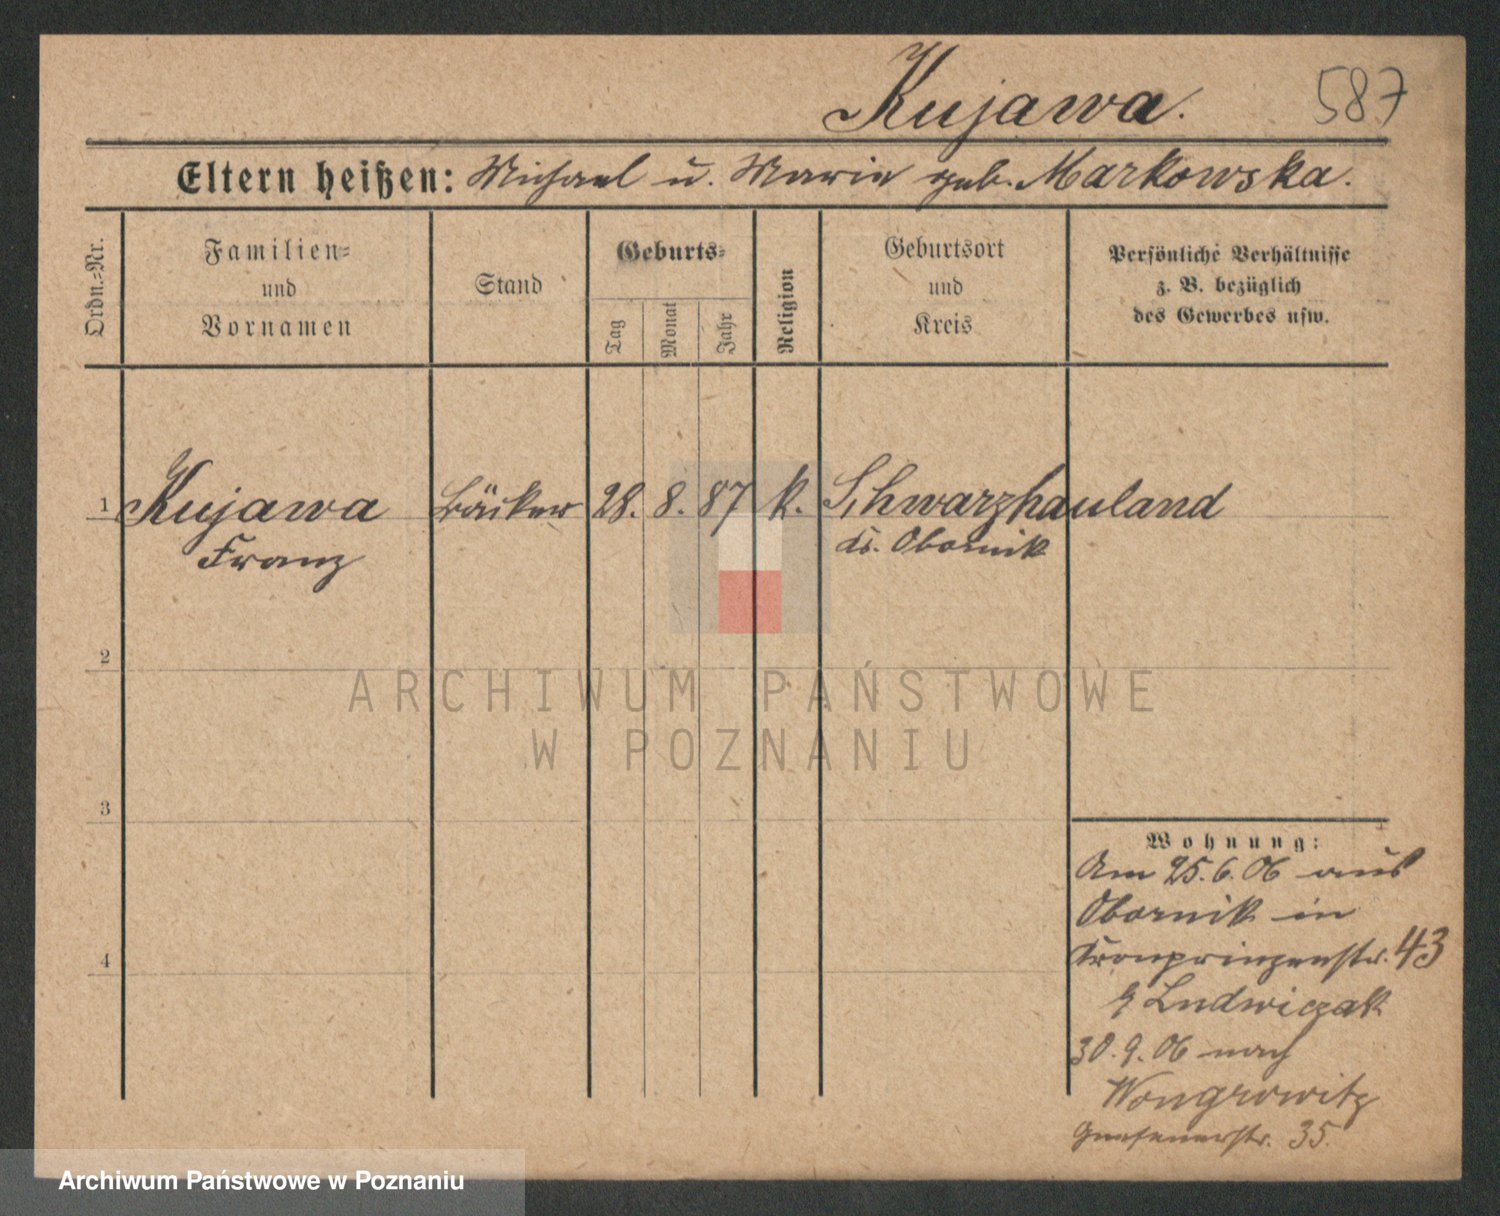 Kujawa.
587
Eltern heißen: Michael u. Marie geb. Markowska.
Ordn.-Nr.
Familien-
und
Vornamen
Stand
Geburts-
Tag
Monat
Jahr
Religion
Geburtsort
und
Kreis
Persönliche Verhältnisse
z. B. bezüglich
des Gewerbes usw.
1 Kujawa Bäcker 28. 8. 87 k. Schwarzhauland
Franz Obornik
2
3
4
Wohnung:
Am 25.6.06 aus
Obornik in
Kronprinzenstr. 43
Ludwiczak
30.9.06 nach
Wongrowitz
Gnesenerstr. 35.
ARCHIWUM PAŃSTWOWE
W POZNANIU
Archiwum Państwowe w Poznaniu